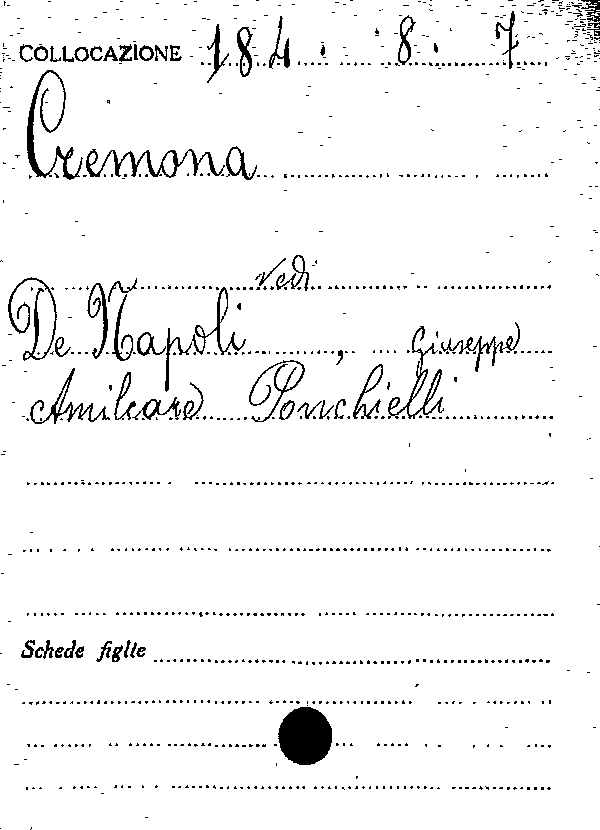 COLLOCAZIONE 184. 8. 7
Cremona
vedi
De Napoli, Giuseppe
Amilcare Ponchielli
Schede figlie